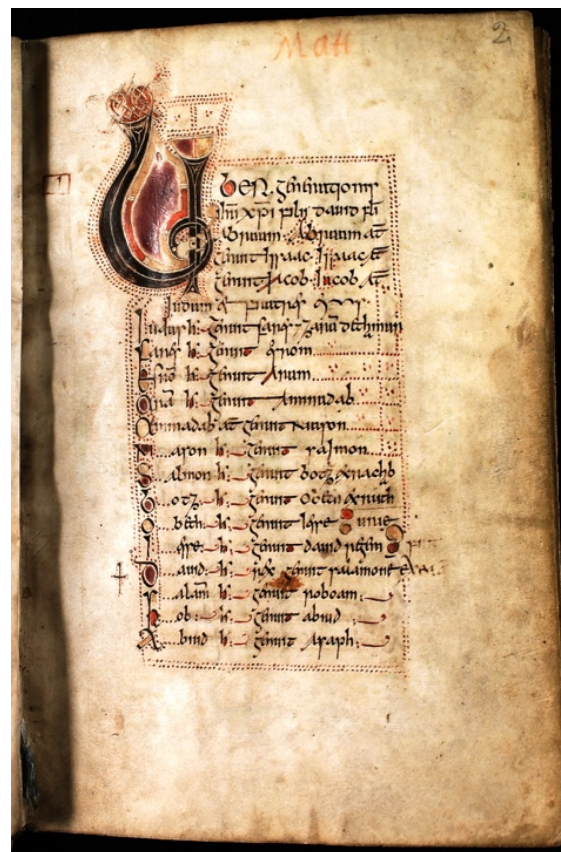 Matt
2
Liber generationis
ihu xpi filii david fili
Abraham. Abraham aut
genuit issac. issac aut
genuit iacob. iacob aut
iudam et fratres
iudas h. genuit fares 7 zara dethamar
Fares h. genuit esrom
Esrom h. genuit aram
Aram h. genuit aminadab
Aminadab aut genuit naason
Naason h. genuit salmon
Salmon h. genuit booz exrachb
booz h. genuit obeth exruth
obeth h. genuit iesse
iesse h. genuit david regem
David h. rex genuit salamone
Salam h. genuit roboam
Rob h. genuit abiud
Abiud h. genuit asaph